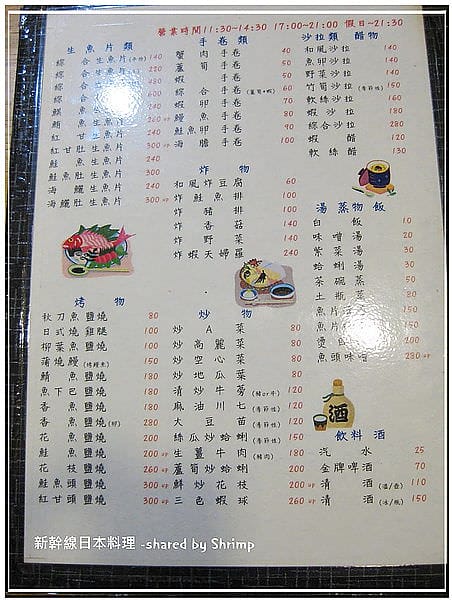 營業時間11:30~14:30 17:00~21:00 假日~21:30
生魚片類
綜合生魚片(小份) 140
綜合生魚片 220
綜
綜
鯛魚生魚片
紅甘生魚片
紅甘肚生魚片 300
鮭魚生魚片 240
鮭魚肚生魚片
海鱺生魚片 240
海鱺肚生魚片 300
手卷類
蟹肉手卷 40
蘆筍手卷 50
蝦手卷 50
綜合手卷(蘆筍+蝦) 60
蝦卵手卷 60
鰻魚手卷 80
鮭魚卵手卷 100
海膽手卷 100
沙拉類 醋物
和風沙拉 140
魚卵沙拉 140
野菜沙拉 140
竹筍沙拉(季節性) 150
軟絲沙拉 160
蝦沙拉 180
綜合沙拉 280
蝦醋 120
軟絲醋 130
炸物
和風炸豆腐 60
炸鮭魚排 100
炸豬排 100
炸香菇 140
炸野菜 140
炸蝦天婦羅 240
湯蒸物飯
白飯 10
味噌湯 20
紫菜湯 30
蛤蜊湯 30
茶碗蒸 50
土瓶蒸
魚片
魚片
燙
魚頭味噌 280
烤物
秋刀魚鹽燒 80
日式燒雞腿 100
柳葉魚鹽燒 100
蒲燒鰻(烤鰻魚) 150
鯖魚鹽燒 180
魚下巴鹽燒 180
香魚鹽燒 180
香魚鹽燒(卵) 280
花魚鹽燒 200
鮭魚鹽燒 200
花枝鹽燒 260
鮭魚頭鹽燒 300
紅甘頭鹽燒 300
炒物
炒A菜 80
炒高麗菜 80
炒空心菜 80
炒地瓜菜 80
清炒牛蒡(豬or牛) 120
麻油川七(季節性) 120
大豆苗(季節性) 120
絲瓜炒蛤蜊(季節性) 150
生薑牛肉(豬肉) 180
蘆筍炒蛤蜊 200
鮮炒花枝 200
三色蝦球 260
酒
飲料酒
汽水 25
金牌啤酒 70
清酒(溫/壺) 110
清酒(冰/瓶) 150
新幹線日本料理 -shared by Shrimp